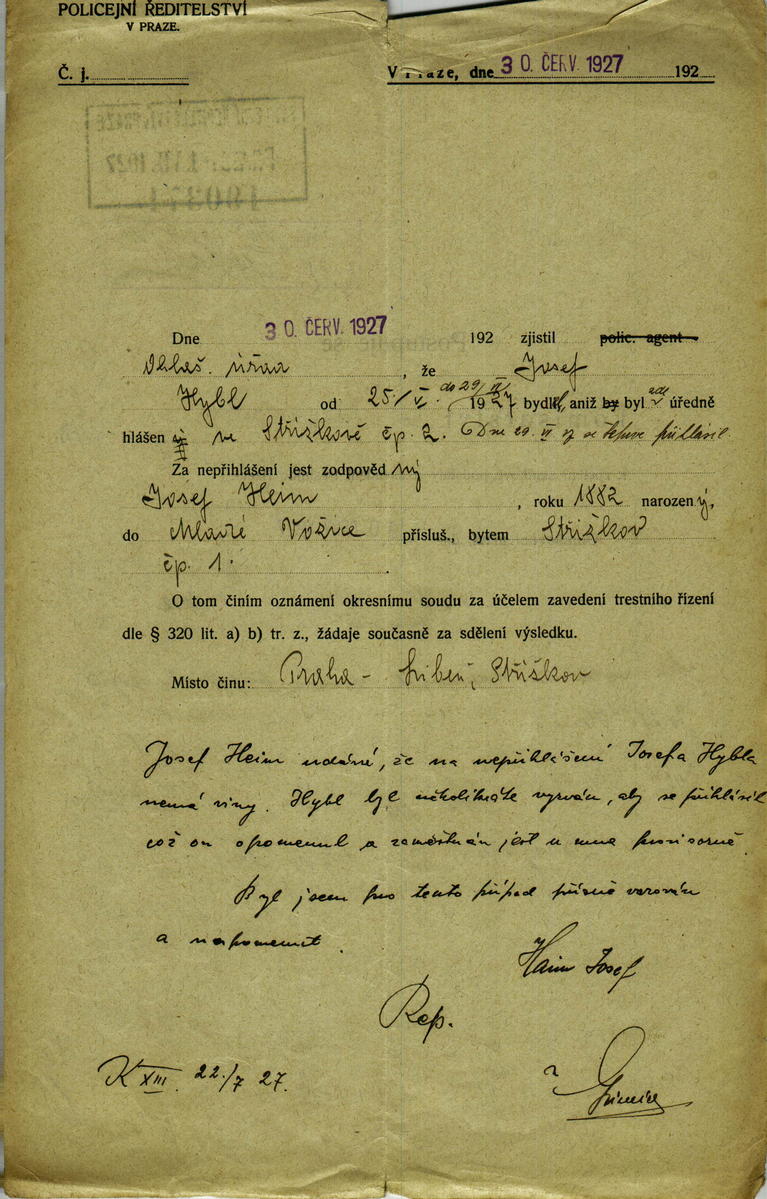 POLICEJNÍ ŘEDITELSTVÍ
V PRAZE.
Č. j.
V Praze, dne 30. ČERV. 1927 192
Dne 30. ČERV. 1927 192 zjistil polic. agent
Ohlaš. úřad, že Josef
Hybl od 25./VI. do 29/VI 1927 bydlil, aniž by byl zde úředně
hlášen ve Střížkově čp. 2. Dne 29. VI se přihlásil
Za nepřihlášení jest zodpovědný
Josef Heim, roku 1882 narozený,
do Mladé Vožice přísluš., bytem Střížkov
čp. 1.
O tom činím oznámení okresnímu soudu za účelem zavedení trestního řízení
dle § 320 lit. a) b) tr. z., žádaje současně za sdělení výsledku.
Místo činu: Praha - Libeň, Střížkov
Josef Heim udává, že na nepřihlášení Josefa Hybla
nemá viny. Hybl byl několikráte vyzván, aby se přihlásil
což on opomenul a zaměstnán jest u mne provisorně.
Byl jsem pro tento případ přísně varován
a napomenut.
Haim Josef
Rep.
K XIII. 22./7 27.